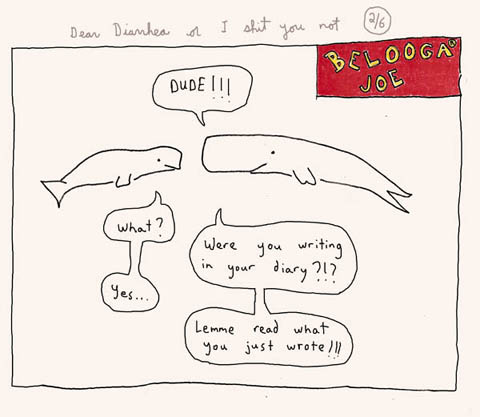 Dear Diarrhea or I shit you not 2/6
BELOOGA
JOE
DUDE!!!
What?
Yes...
Were you writing
in your diary?!?
Lemme read what
you just wrote!!!